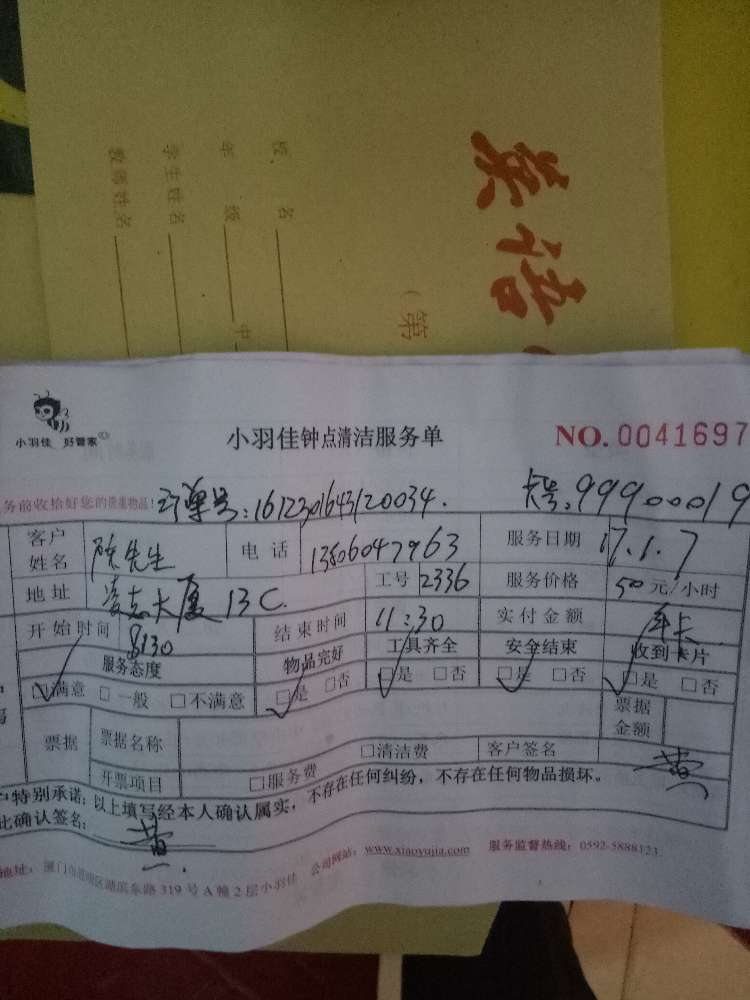 英语
（第
校 名
年 级
中
学生姓名
教师姓名
小羽佳 好管家
小羽佳钟点清洁服务单
NO. 0041697
务前收拾好您的贵重物品!
订单号:161230164312 0034.
卡号:99900019
客户姓名 陈先生 电话 13806047963 服务日期 17.1.7
地址 凌志大厦13C. 工号 2336 服务价格 50元/小时
开始时间 8:30 结束时间 11:30 实付金额 年卡
服务态度 物品完好 工具齐全 安全结束 收到卡片
□满意 □一般 □不满意 □是 □否 □是 □否 □是 □否 □是 □否
票据 票据名称 票据金额
开票项目 □服务费 □清洁费 客户签名 黄
户特别承诺:以上填写经本人确认属实,不存在任何纠纷,不存在任何物品损坏。
此确认签名: 黄
地址: 厦门市思明区湖滨东路319号A幢2层小羽佳 公司网站: www.xiaoyujia.com 服务监督热线: 0592-5888123